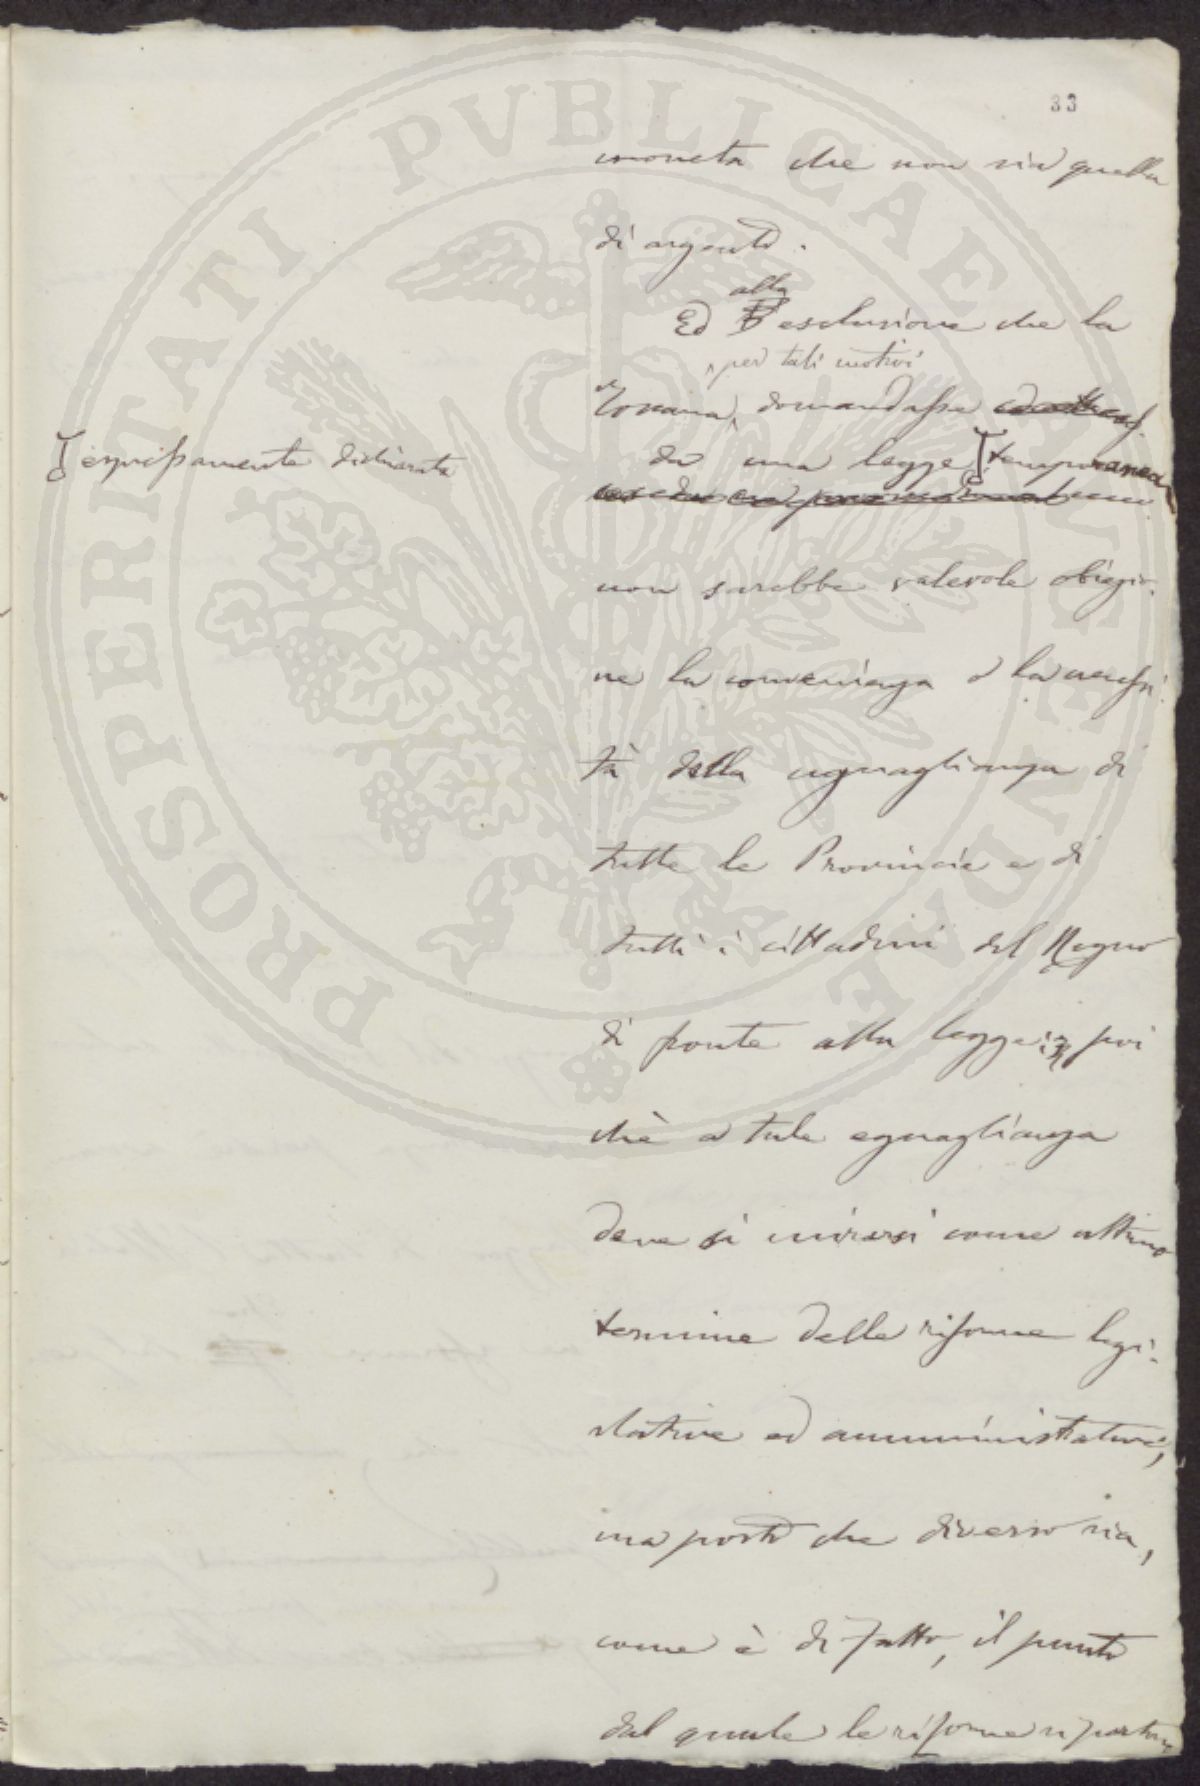 33
moneta che non sia quella
di argento.
alla
Ed esclusione che la
per tali motivi
Toscana, domandasse
da una legge temporanea
espressamente dichiarata
non sarebbe valevole obiezio-
ne la convenienza o la necessi-
tà della uguaglianza di
tutte le Provincie e di
tutti i cittadini del Regno
di fronte alla legge; poi
chè a tale eguaglianza
deve sì mirarsi come ultimo
termine delle riforme legi-
slative ed amministrative,
ma posto che diverso sia,
come è di fatto, il punto
dal quale le riforme si partono
PROSPERITATI PVBLICAE AVGENDAE